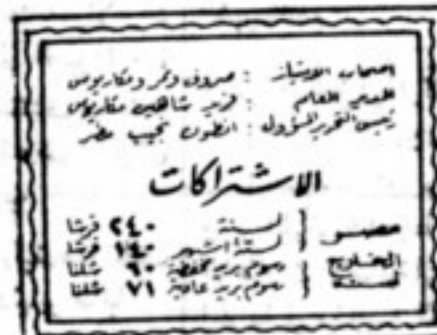 أصحاب الامتياز : صروف ونمر ومكاريوس
المدير العام : فريد شاهين مكاريوس
رئيس التحرير المسؤول : أنطون نجيب مطر
الاشتراكات
مصر لسنة ٢٤٠ قرشا
لستة أشهر ١٤٠ قرشا
الخارج رسوم بريد مخفضة ٦٠ شلنا
لسنة رسوم بريد عادية ٧١ شلنا